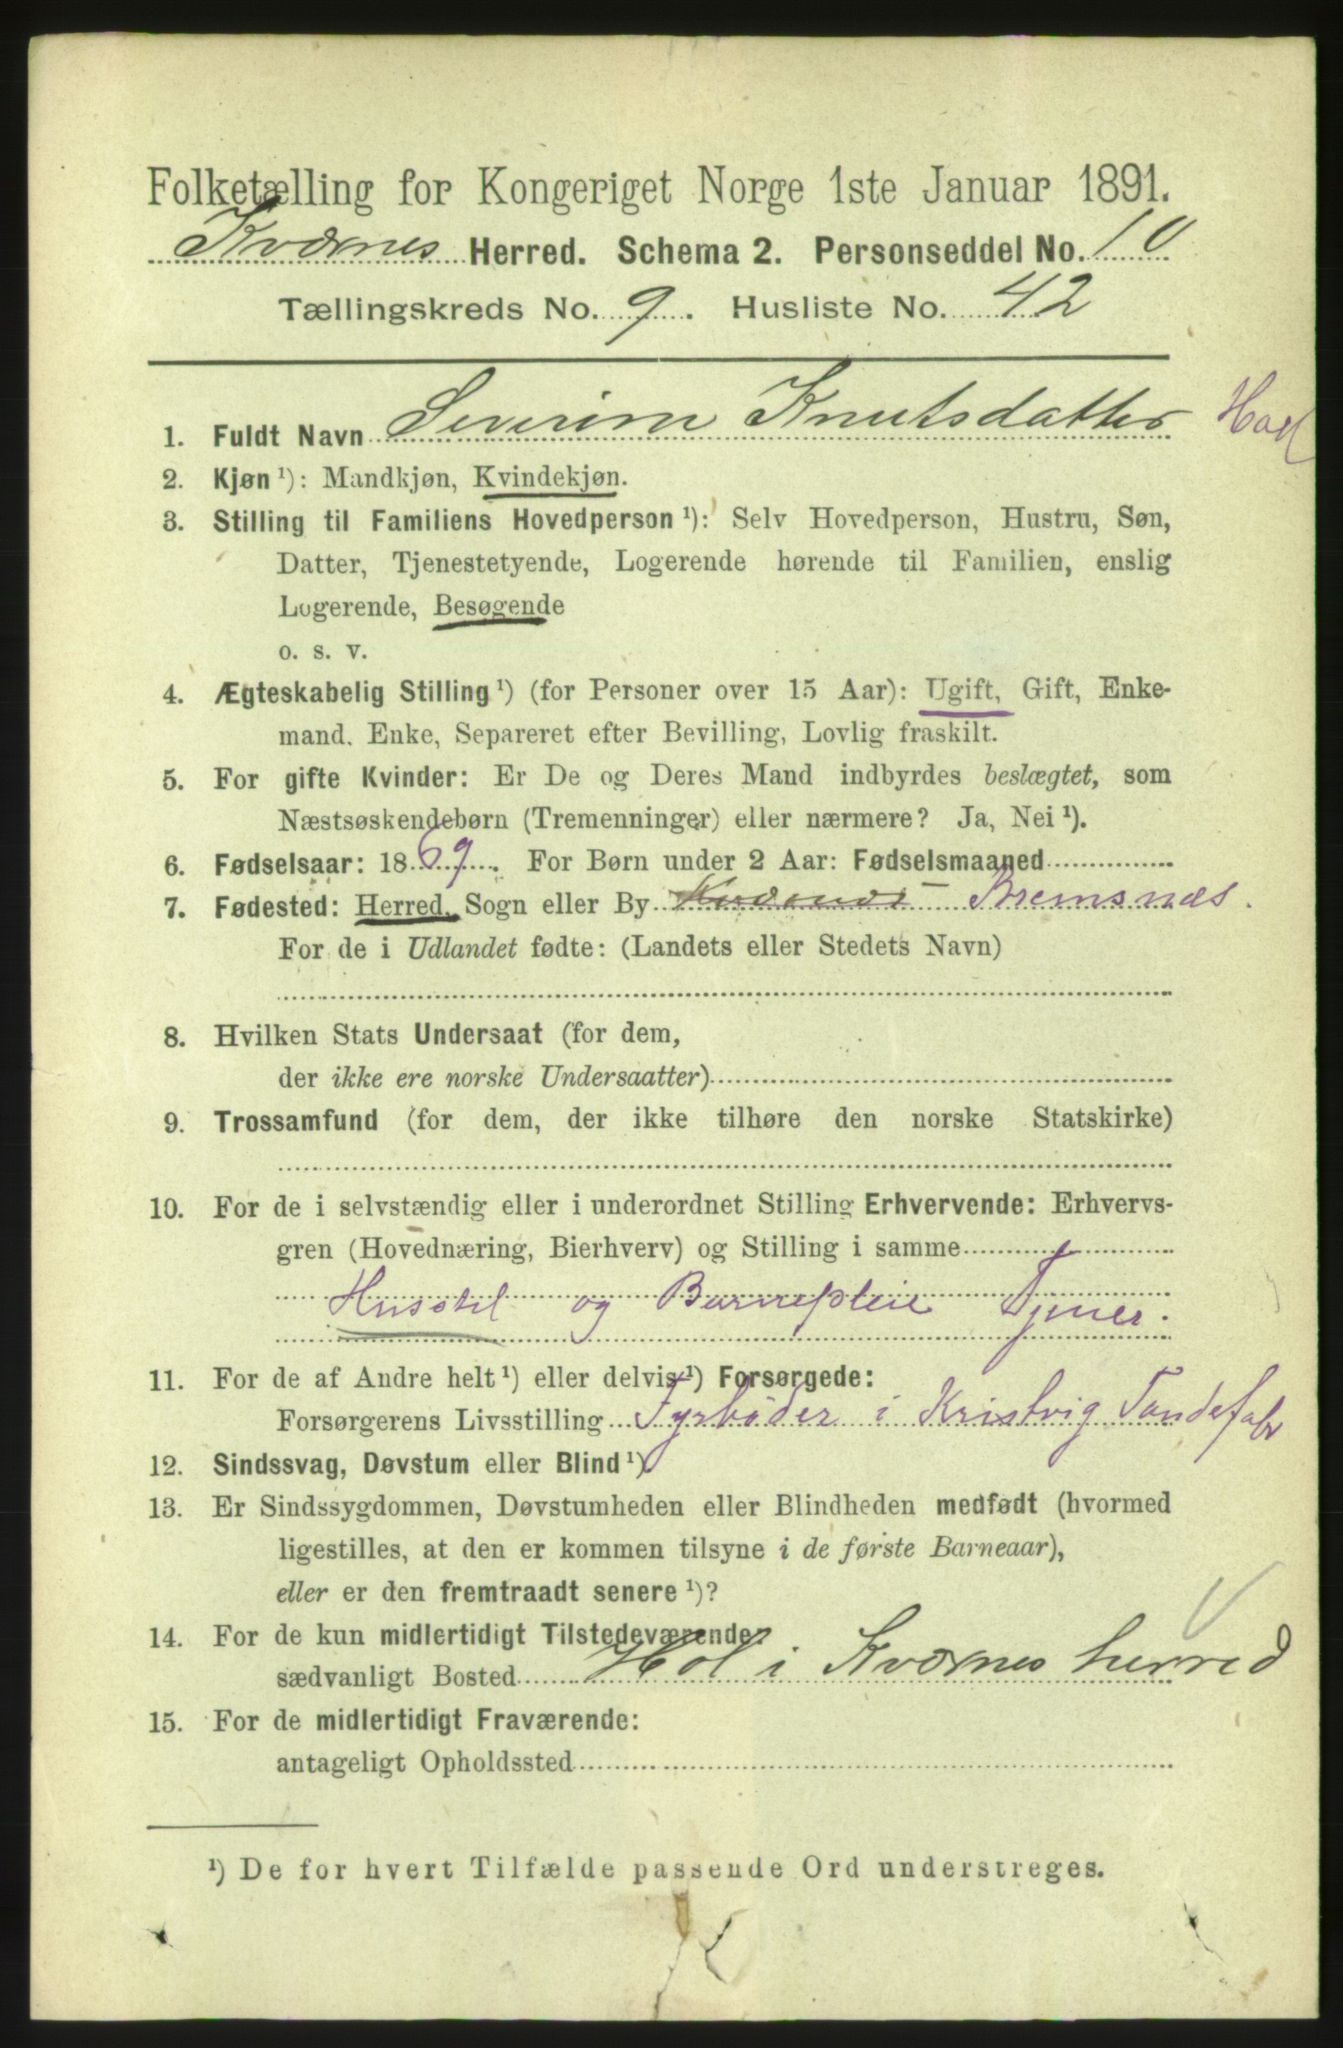 Folketælling for Kongeriget Norge 1ste Januar 1891.
Kværnes Herred. Schema 2. Personseddel No. 10
Tællingskreds No. 9. Husliste No. 42
1. Fuldt Navn Severine Knutsdatter
2. Kjøn ¹): Mandkjøn, Kvindekjøn.
3. Stilling til Familiens Hovedperson ¹): Selv Hovedperson, Hustru, Søn,
Datter, Tjenestetyende, Logerende hørende til Familien, enslig
Logerende, Besøgende
o. s. v.
4. Ægteskabelig Stilling ¹) (for Personer over 15 Aar): Ugift, Gift, Enke-
mand. Enke, Separeret efter Bevilling, Lovlig fraskilt.
5. For gifte Kvinder: Er De og Deres Mand indbyrdes beslægtet, som
Næstsøskendebørn (Tremenninger) eller nærmere? Ja, Nei ¹).
6. Fødselsaar: 1869. For Børn under 2 Aar: Fødselsmaaned
7. Fødested: Herred, Sogn eller By Kværnes - Bremsnæs.
For de i Udlandet fødte: (Landets eller Stedets Navn)
8. Hvilken Stats Undersaat (for dem,
der ikke ere norske Undersaatter)
9. Trossamfund (for dem, der ikke tilhøre den norske Statskirke)
10. For de i selvstændig eller i underordnet Stilling Erhvervende: Erhvervs-
gren (Hovednæring, Bierhverv) og Stilling i samme
Husstel og Barnepleie Tjener.
11. For de af Andre helt ¹) eller delvis ¹) Forsørgede:
Forsørgerens Livsstilling Fyrbøder i Kristvig Tøndefabr
12. Sindssvag, Døvstum eller Blind ¹)
13. Er Sindssygdommen, Døvstumheden eller Blindheden medfødt (hvormed
ligestilles, at den er kommen tilsyne i de første Barneaar),
eller er den fremtraadt senere ¹)?
14. For de kun midlertidigt Tilstedeværende:
sædvanligt Bosted Hol i Kværnes herred
15. For de midlertidigt Fraværende:
antageligt Opholdssted
¹) De for hvert Tilfælde passende Ord understreges.